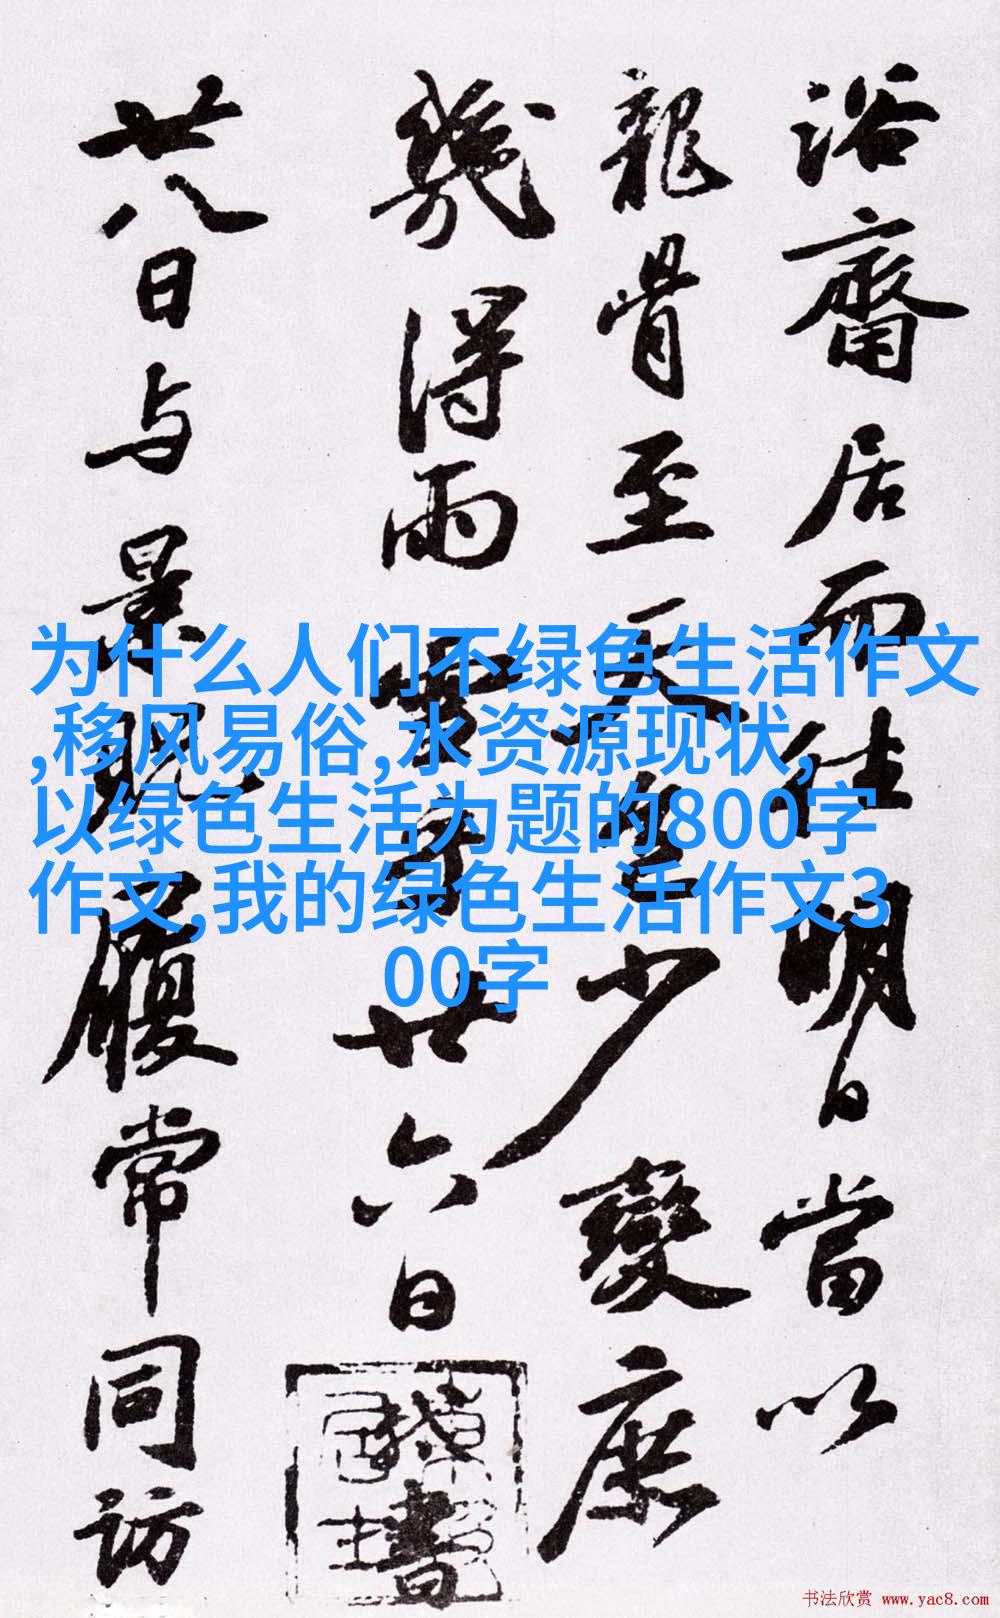 浴齋居而往明日當以
龍骨至天慶少變庶
幾得雨雪耳廿六日
書
廿八日与景貺履常同訪
为什么人们不绿色生活作文
,移风易俗,水资源现状,
以绿色生活为题的800字
作文,我的绿色生活作文3
00字
书法欣赏 www.yac8.com